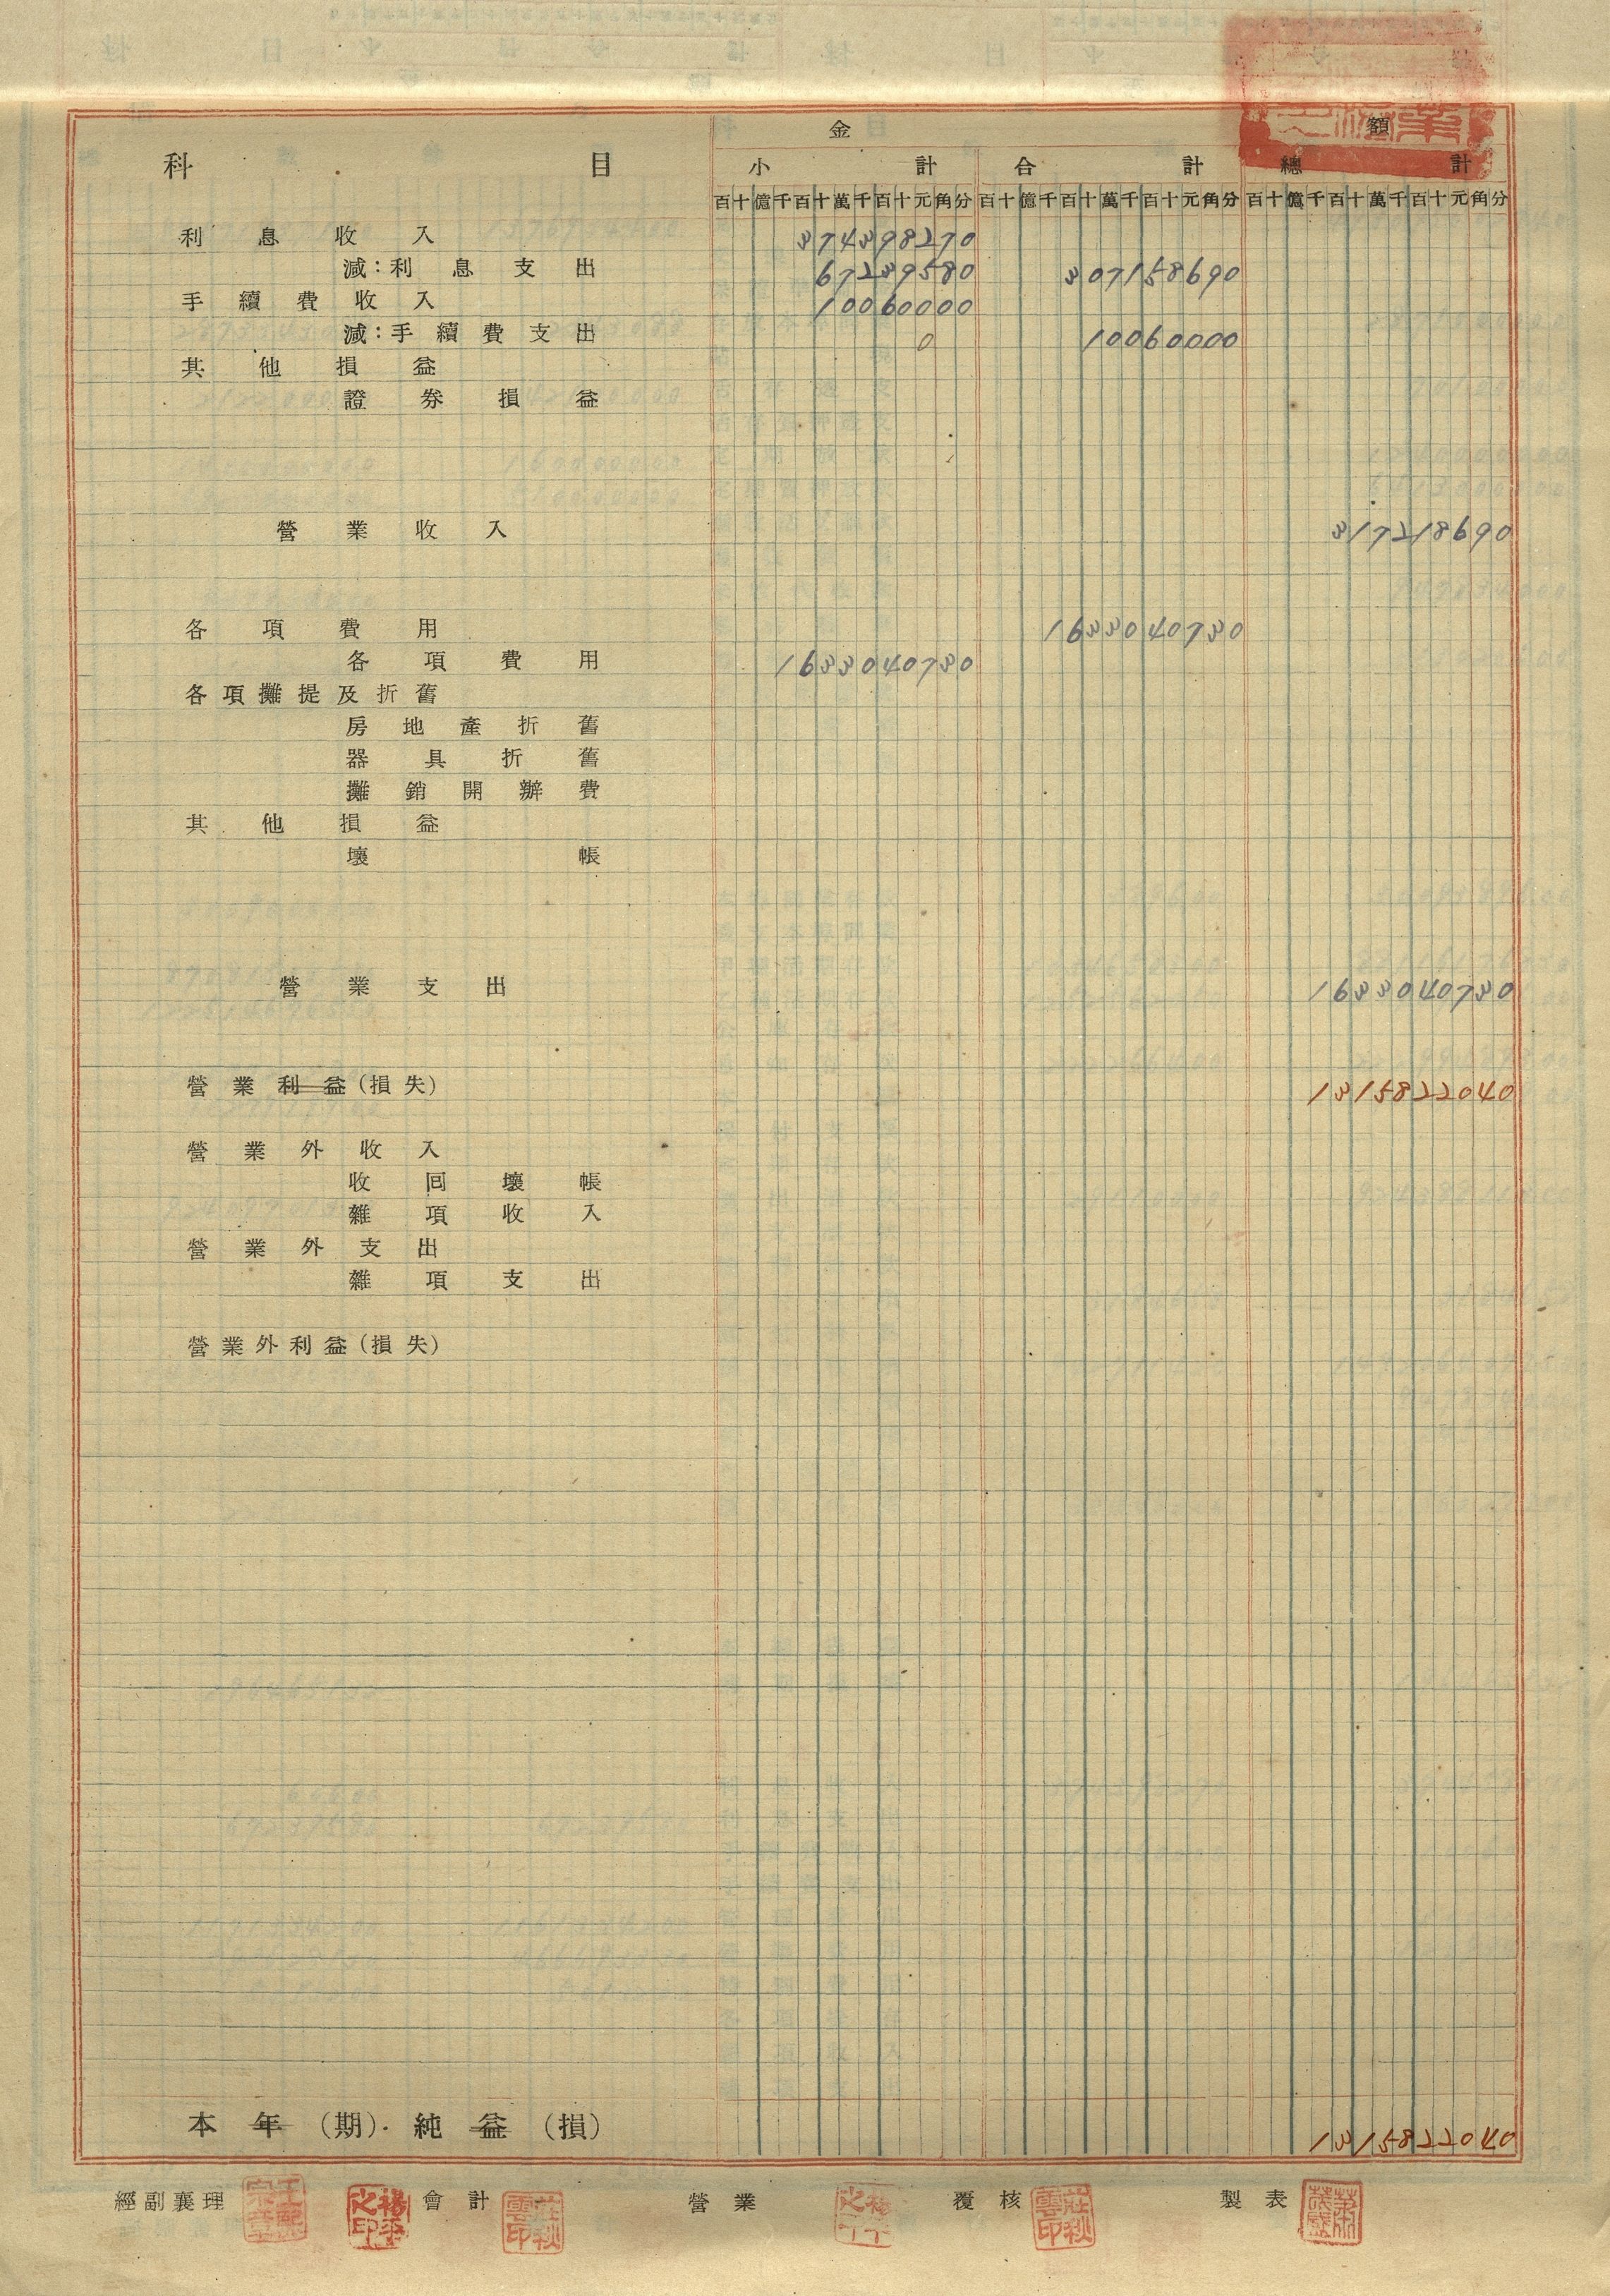 金 額
科 目
小 計 合 計 總 計
百十億千百十萬千百十元角分 百十億千百十萬千百十元角分 百十億千百十萬千百十元角分
利息收入 374398270
減:利息支出 67239580 307158690
手續費收入 10060000
減:手續費支出 0 10060000
其他損益
證券損益
營業收入 317218690
各項費用 1633040730
各項費用 1633040730
各項攤提及折舊
房地產折舊
器具折舊
攤銷開辦費
其他損益
壞帳
營業支出 1633040730
營業利益(損失) 1315822040
營業外收入
收回壞帳
雜項收入
營業外支出
雜項支出
營業外利益(損失)
本年(期)純益(損) 1315822040
經副襄理 會計 莊秋雲印 營業 覆核 莊秋雲印 製表